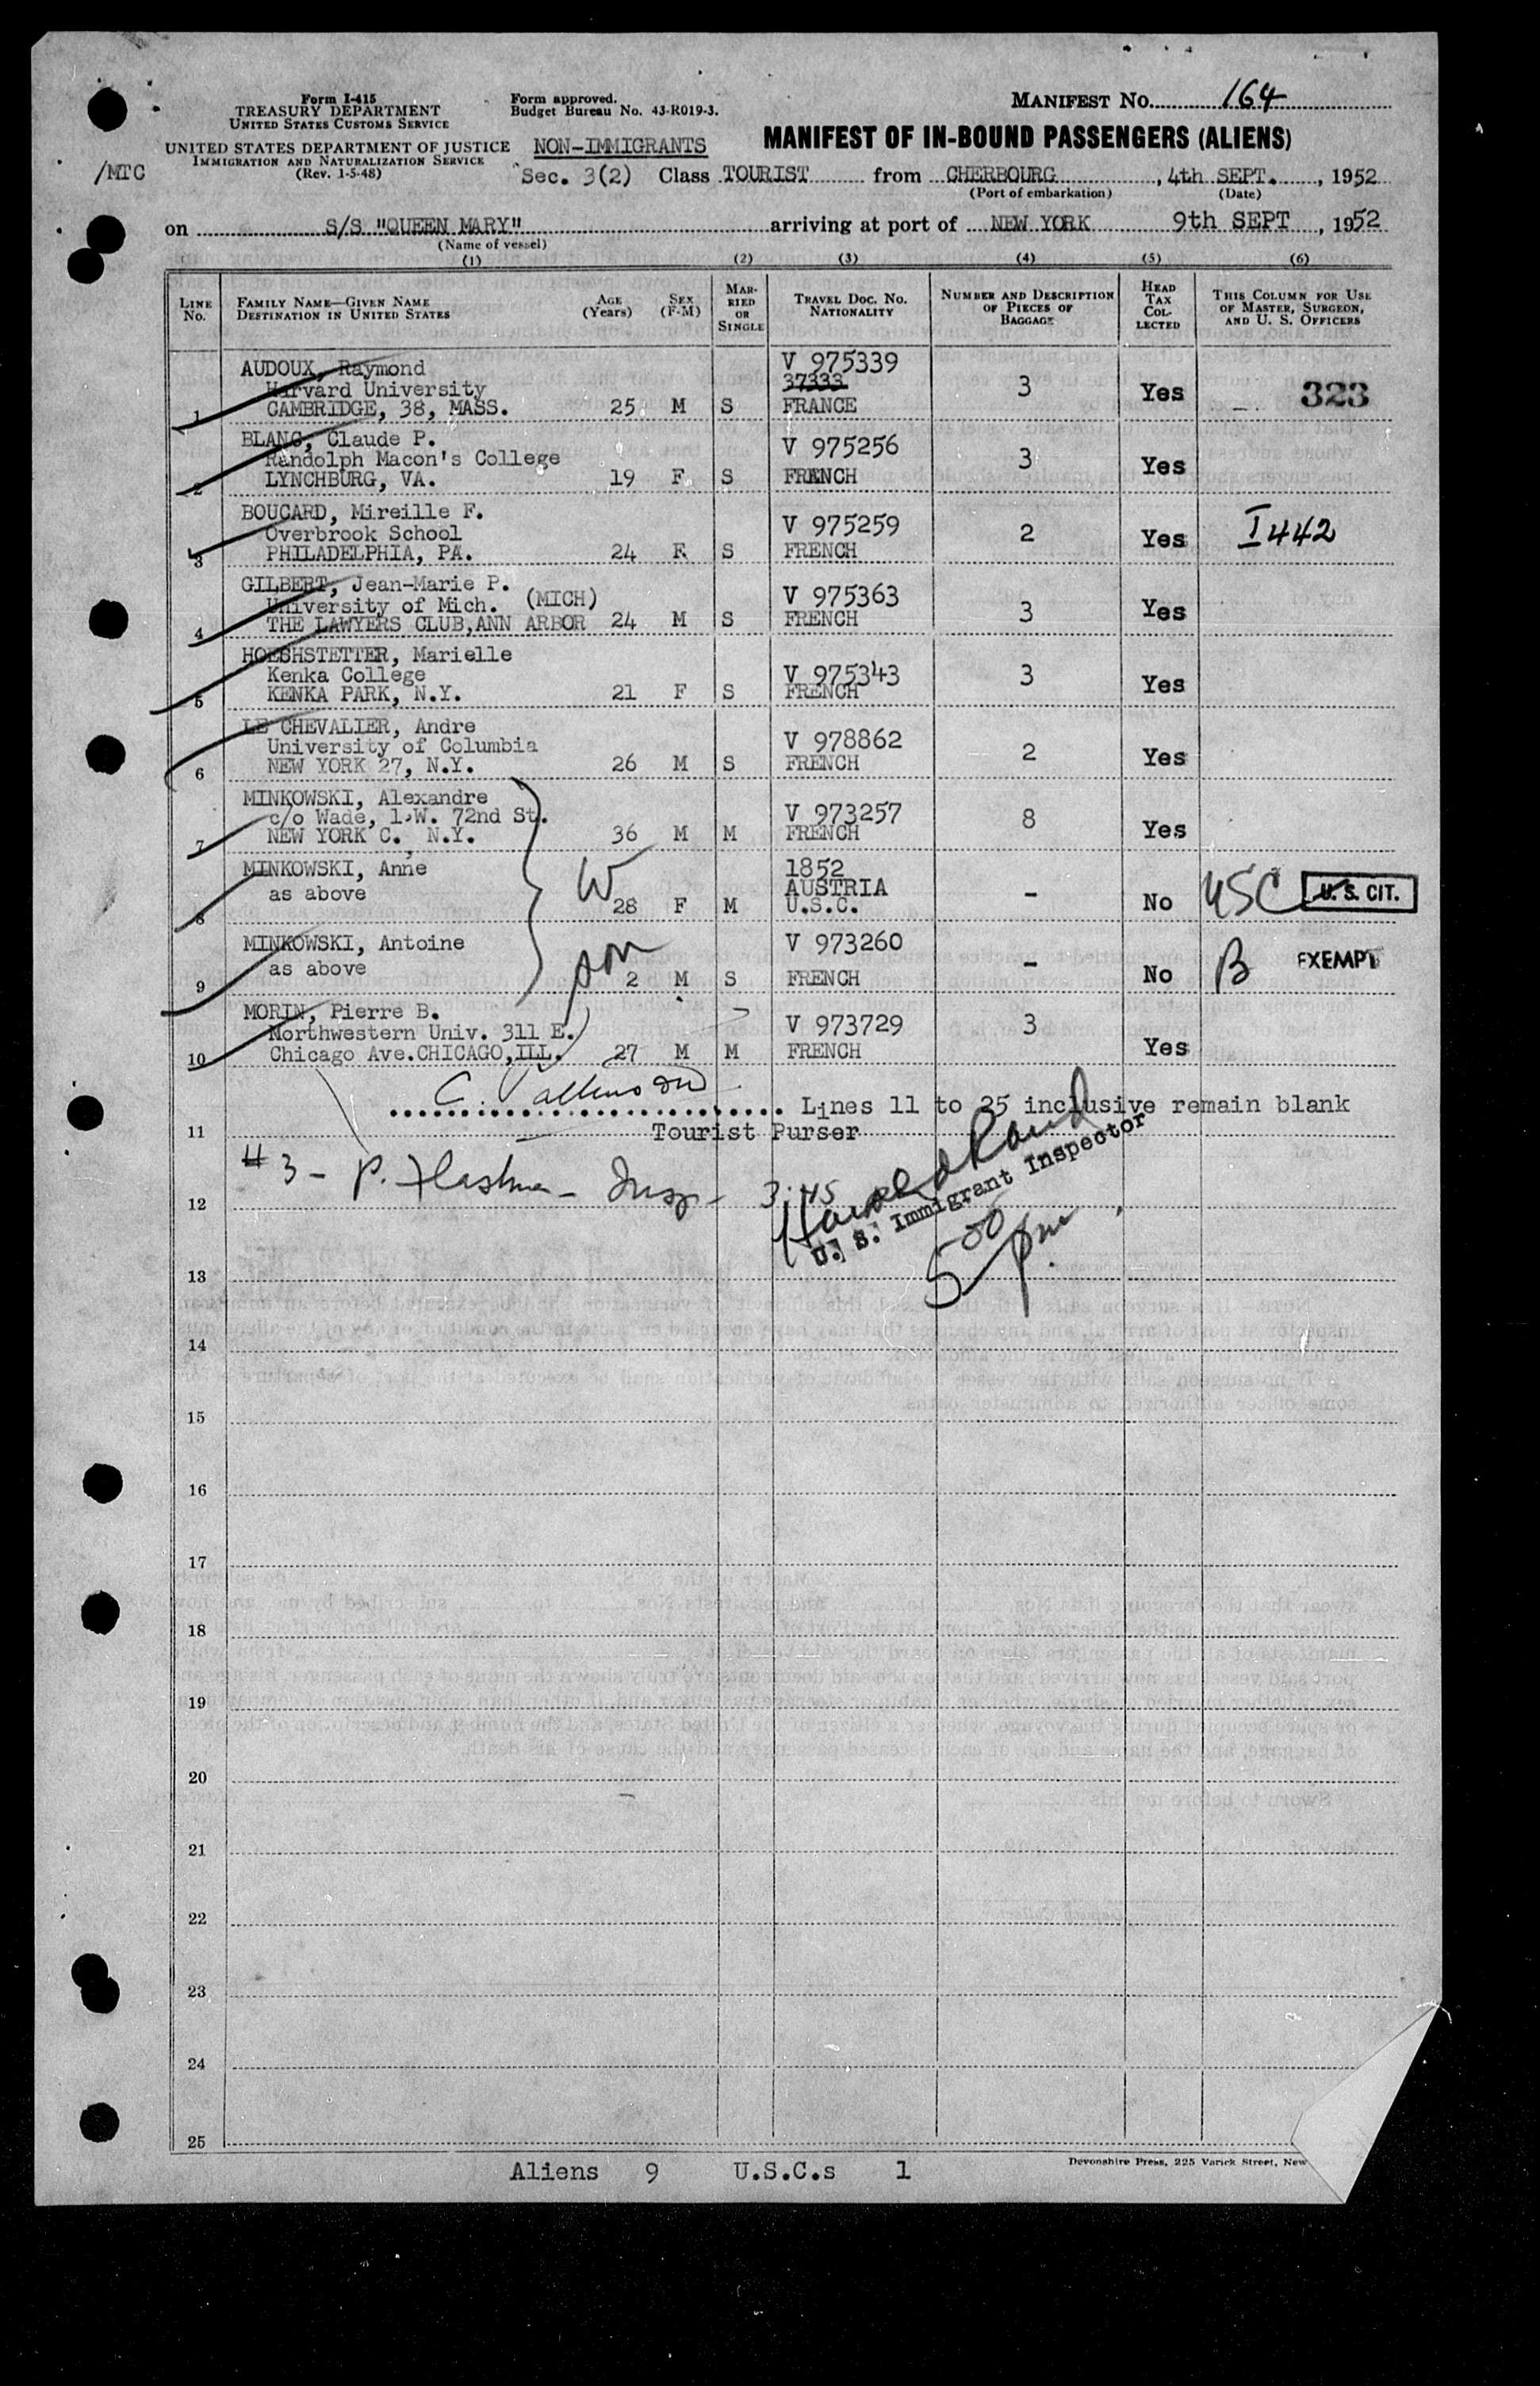 Form I-415
TREASURY DEPARTMENT
UNITED STATES CUSTOMS SERVICE
UNITED STATES DEPARTMENT OF JUSTICE
IMMIGRATION AND NATURALIZATION SERVICE
(Rev. 1-5-48)
/MTC
Form approved.
Budget Bureau No. 43-R019-3.
MANIFEST No. 164
NON-IMMIGRANTS
MANIFEST OF IN-BOUND PASSENGERS (ALIENS)
Sec. 3(2) Class TOURIST from CHERBOURG, 4th SEPT., 1952
(Port of embarkation) (Date)
on S/S "QUEEN MARY" arriving at port of NEW YORK 9th SEPT, 1952
(Name of vessel)
(1) (2) (3) (4) (5) (6)
LINE No.
FAMILY NAME—GIVEN NAME
DESTINATION IN UNITED STATES
AGE (Years)
SEX (F-M)
MARRIED OR SINGLE
TRAVEL DOC. NO.
NATIONALITY
NUMBER AND DESCRIPTION OF PIECES OF BAGGAGE
HEAD TAX COLLECTED
THIS COLUMN FOR USE OF MASTER, SURGEON, AND U. S. OFFICERS
AUDOUX, Raymond V 975339
Harvard University 37333 3 Yes 323
1 CAMBRIDGE, 38, MASS. 25 M S FRANCE
BLANC, Claude P. V 975256
Randolph Macon's College 3 Yes
2 LYNCHBURG, VA. 19 F S FRENCH
BOUCARD, Mireille F. V 975259
Overbrook School 2 Yes I442
3 PHILADELPHIA, PA. 24 F S FRENCH
GILBERT, Jean-Marie P. V 975363
University of Mich. (MICH) 3 Yes
4 THE LAWYERS CLUB,ANN ARBOR 24 M S FRENCH
HOESHSTETTER, Marielle
Kenka College V 975343 3 Yes
5 KENKA PARK, N.Y. 21 F S FRENCH
LE CHEVALIER, Andre
University of Columbia V 978862 2 Yes
6 NEW YORK 27, N.Y. 26 M S FRENCH
MINKOWSKI, Alexandre
c/o Wade, 1.W. 72nd St. V 973257 8 Yes
7 NEW YORK C., N.Y. 36 M M FRENCH
MINKOWSKI, Anne W 1852
as above AUSTRIA - No USC U.S. CIT.
8 28 F M U.S.C.
MINKOWSKI, Antoine son V 973260
as above - No B EXEMPT
9 2 M S FRENCH
MORIN, Pierre B.
Northwestern Univ. 311 E. V 973729 3 Yes
10 Chicago Ave.CHICAGO,ILL. 27 M M FRENCH
C.
Lines 11 to 25 inclusive remain blank
11 Tourist Purser
#3 - P. - Insp - 3:45
Harold Rand
U. S. Immigrant Inspector
12
5 00 pm
13
14
15
16
17
18
19
20
21
22
23
24
25
Aliens 9 U.S.C.s 1
Devonshire Press, 225 Varick Street, New